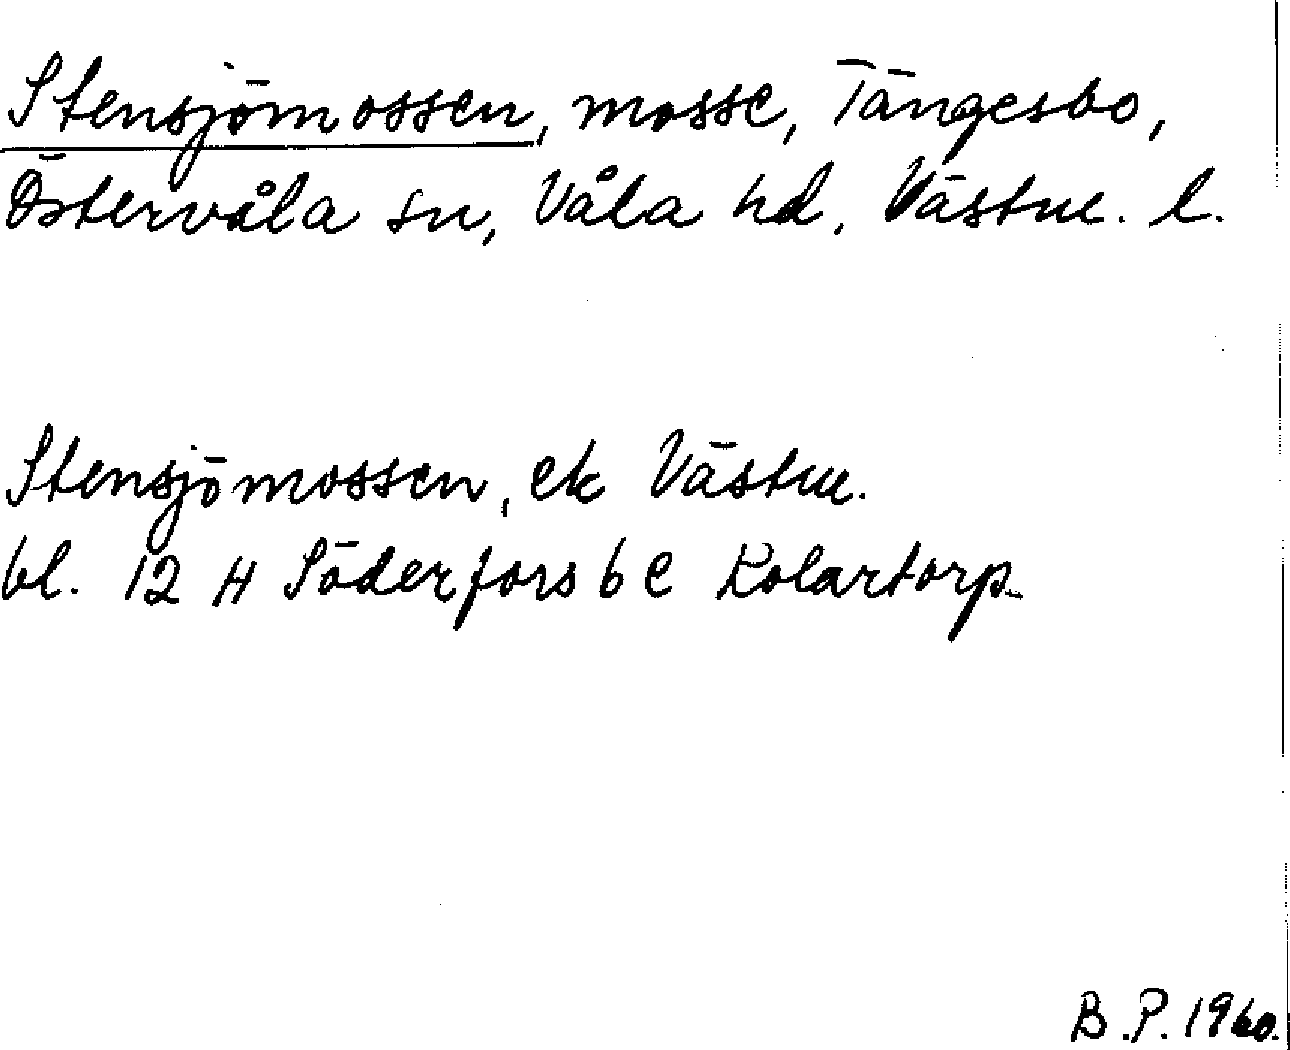 Stensjömossen, mosse, Tängesbo,
Östervåla sn, Våla hd, Västm. l.
Stensjömossen, ek Västm.
bl. 12 H Söderfors 6 e Kolartorp.
B.P. 1960.